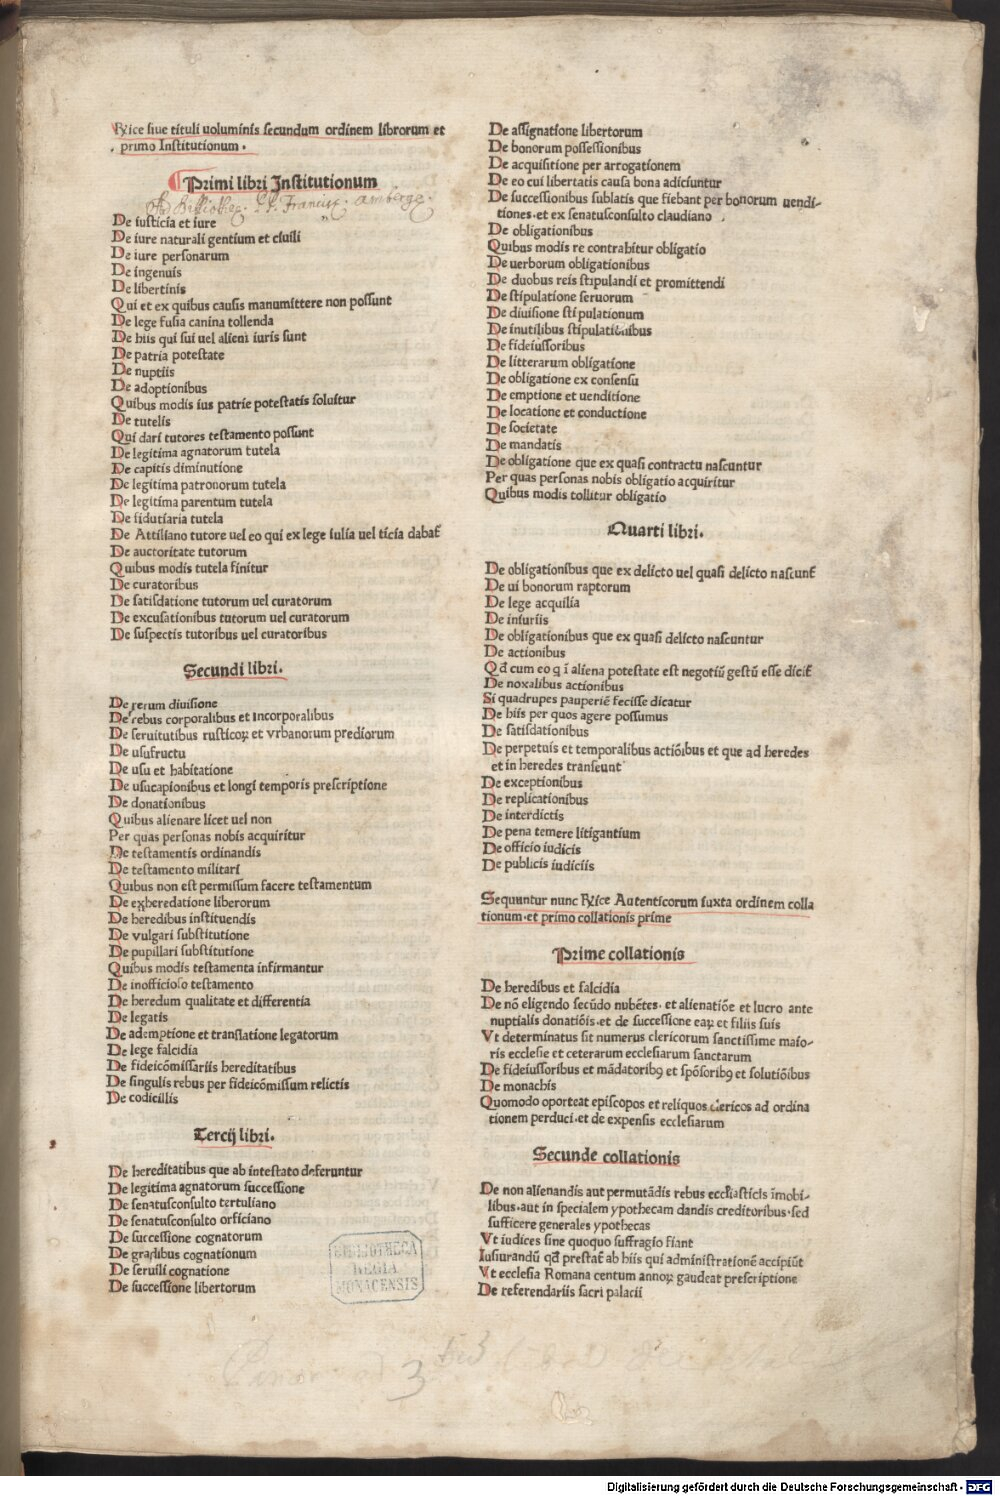 Rꝛice siue tituli uoluminis secundum ordinem librorum et
primo Institutionum.
Primi libri Institutionum
Ad Bibliothec. PP. Francisc. Ambergę.
De iusticia et iure
De iure naturali gentium et ciuili
De iure personarum
De ingenuis
De libertinis
Qui et ex quibus causis manumittere non possunt
De lege fusia canina tollenda
De hiis qui sui uel alieni iuris sunt
De patria potestate
De nuptiis
De adoptionibus
Quibus modis ius patrie potestatis soluitur
De tutelis
Qui dari tutores testamento possunt
De legitima agnatorum tutela
De capitis diminutione
De legitima patronorum tutela
De legitima parentum tutela
De fidutiaria tutela
De Attiliano tutore uel eo qui ex lege iulia uel ticia dabat̃
De auctoritate tutorum
Quibus modis tutela finitur
De curatoribus
De satisdatione tutorum uel curatorum
De excusationibus tutorum uel curatorum
De suspectis tutoribus uel curatoribus
Secundi libri.
De rerum diuisione
De rebus corporalibus et incorporalibus
De seruitutibus rusticoꝝ et vrbanorum prediorum
De usufructu
De usu et habitatione
De usucapionibus et longi temporis prescriptione
De donationibus
Quibus alienare licet uel non
Per quas personas nobis acquiritur
De testamentis ordinandis
De testamento militari
Quibus non est permissum facere testamentum
De exheredatione liberorum
De heredibus instituendis
De vulgari substitutione
De pupillari substitutione
Quibus modis testamenta infirmantur
De inofficioso testamento
De heredum qualitate et differentia
De legatis
De ademptione et translatione legatorum
De lege falcidia
De fideicōmissariis hereditatibus
De singulis rebus per fideicōmissum relictis
De codicillis
Tercij libri.
De hereditatibus que ab intestato deferuntur
De legitima agnatorum successione
De senatusconsulto tertuliano
De senatusconsulto orficiano
De successione cognatorum
De gradibus cognationum
De seruili cognatione
De successione libertorum
BIBLIOTHECA
REGIA
MONACENSIS
De assignatione libertorum
De bonorum possessionibus
De acquisitione per arrogationem
De eo cui libertatis causa bona adiciuntur
De successionibus sublatis que fiebant per bonorum uendi-
tiones. et ex senatusconsulto claudiano
De obligationibus
Quibus modis re contrahitur obligatio
De uerborum obligationibus
De duobus reis stipulandi et promittendi
De stipulatione seruorum
De diuisione stipulationum
De inutilibus stipulationibus
De fideiussoribus
De litterarum obligatione
De obligatione ex consensu
De emptione et uenditione
De locatione et conductione
De societate
De mandatis
De obligatione que ex quasi contractu nascuntur
Per quas personas nobis obligatio acquiritur
Quibus modis tollitur obligatio
Quarti libri.
De obligationibus que ex delicto uel quasi delicto nascunt̃
De ui bonorum raptorum
De lege acquilia
De iniuriis
De obligationibus que ex quasi delicto nascuntur
De actionibus
Qđ cum eo q ī aliena potestate est negotiū gestū esse dicit̃
De noxalibus actionibus
Si quadrupes pauperiē fecisse dicatur
De hiis per quos agere possumus
De satisdationibus
De perpetuis et temporalibus actiōibus et que ad heredes
et in heredes transeunt
De exceptionibus
De replicationibus
De interdictis
De pena temere litigantium
De officio iudicis
De publicis iudiciis
Sequuntur nunc Rꝛice Autenticorum iuxta ordinem colla
tionum. et primo collationis prime
Prime collationis
De heredibus et falcidia
De nō eligendo secūdo nubētes. et alienatiōe et lucro ante
nuptialis donatiōis. et de successione eaꝝ et filiis suis
Vt determinatus sit numerus clericorum sanctissime maio-
ris ecclesie et ceterarum ecclesiarum sanctarum
De fideiussoribus et mādatoribꝯ et spōsoribꝯ et solutiōibus
De monachis
Quomodo oporteat episcopos et reliquos clericos ad ordina
tionem perduci. et de expensis ecclesiarum
Secunde collationis
De non alienandis aut permutādis rebus ecclesiasticis īmobi-
libus. aut in specialem ypothecam dandis creditoribus. sed
sufficere generales ypothecas
Vt iudices sine quoquo suffragio fiant
Iusiurandū qđ prestat̃ ab hiis qui administrationē accipiūt
Vt ecclesia Romana centum annoꝝ gaudeat prescriptione
De referendariis sacri palacii
3
Digitalisierung gefördert durch die Deutsche Forschungsgemeinschaft - DFG